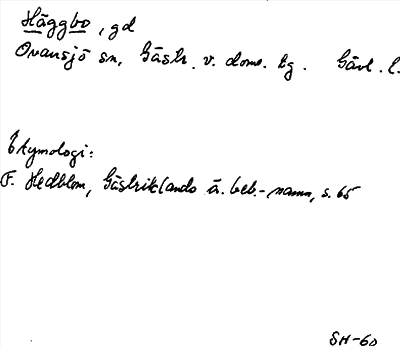 Häggbo, gd
Ovansjö sn, Gästr. v. doms. tg. Gävl. l.
Etymologi:
F. Hedblom, Gästriklands ä. beb.-namn, s. 65
SH-60